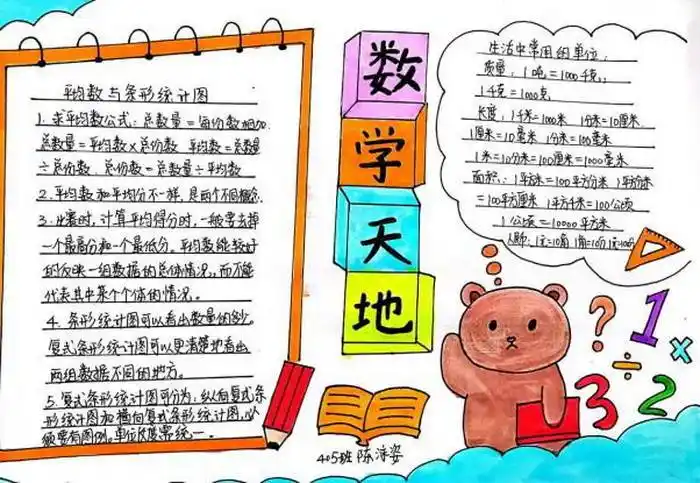 平均数与条形统计图
1. 求平均数公式：总数量=每份数相加.
总数量=平均数×总份数 平均数=总数量
÷总份数. 总份数=总数量÷平均数
2. 平均数和平均分不一样，是两个不同概念.
3. 比赛时，计算平均得分时，一般要去掉
一个最高分和一个最低分。平均数能较好
的反映一组数据的总体情况，而不能
代表其中某个个体的情况。
4. 条形统计图可以看出数量的多少,
复式条形统计图可以更清楚地看出
两组数据不同的地方。
5. 复式条形统计图可分为：纵向复式条
形统计图和横向复式条形统计图，必
须要有图例。单位长度需统一。
数
学
天
地
405班 陈
姿
生活中常用的单位：
质量：1吨=1000千克，
1千克=1000克
长度：1千米=1000米 1分米=10厘米
1厘米=10毫米 1分米=100毫米
1米=10分米=100厘米=1000毫米
面积：1平方米=100平方分米 1平方分米
=100平方厘米 1平方千米=100公顷
1公顷=10000平方米
人民币：1元=10角 1角=10分 1元=100分
? 1
÷ ×
3 2